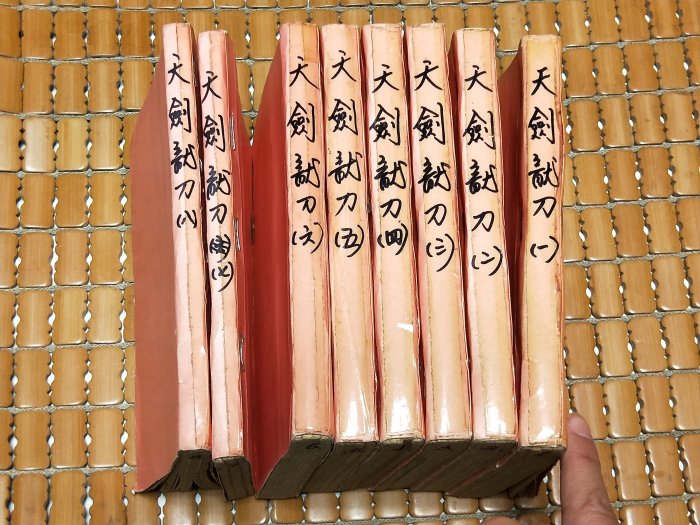 天劍龍刀(一)
天劍龍刀(二)
天劍龍刀(三)
天劍龍刀(四)
天劍龍刀(五)
天劍龍刀(六)
天劍龍刀(七)
天劍龍刀(八)